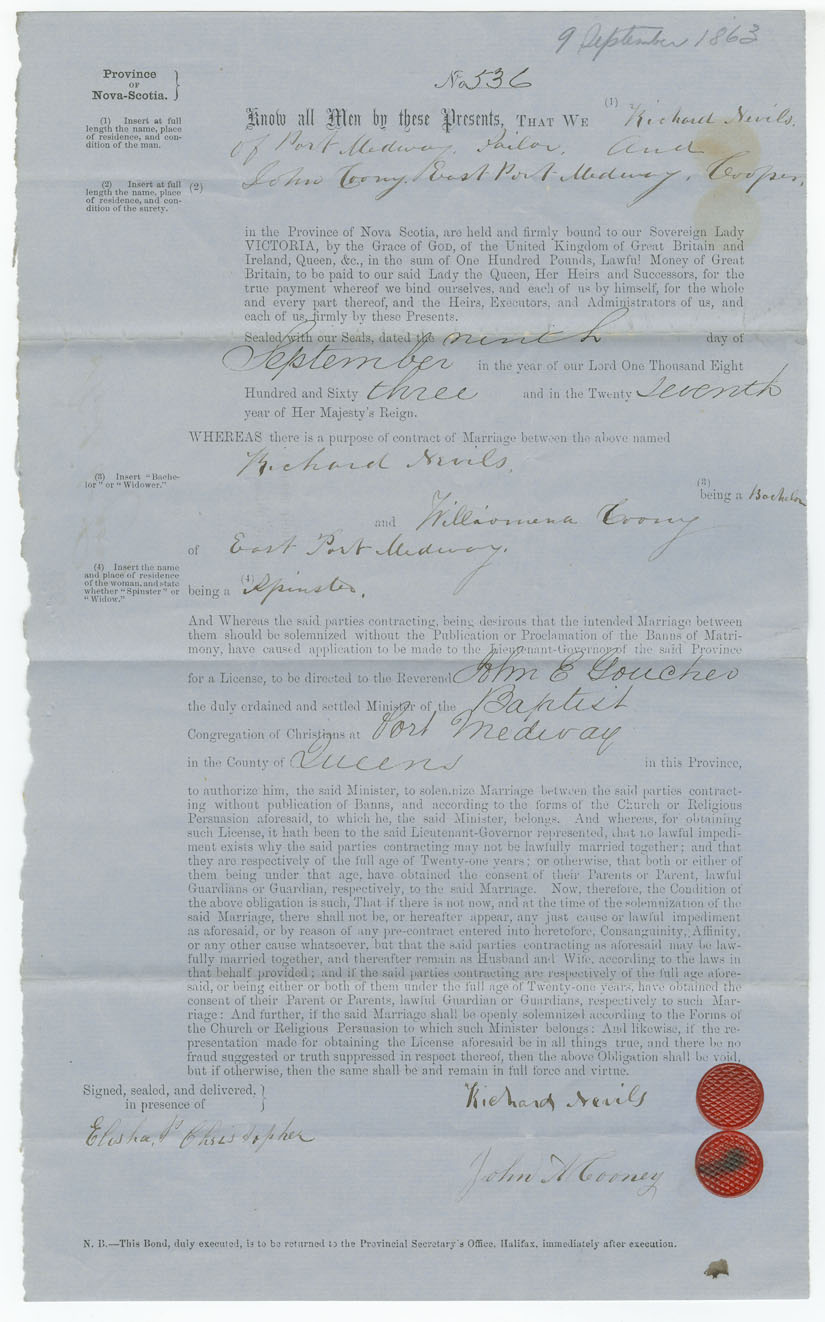 9 September 1863
Province
OF
Nova-Scotia. }
No 536
(1) Insert at full
length the name, place
of residence, and con-
dition of the man.
Know all Men by these Presents, THAT WE (1) Richard Nevils.
of Port Medway. Sailor. And
(2) Insert at full
length the name, place
of residence, and con-
dition of the surety.
(2) John Coony. East Port Medway. Cooper,
in the Province of Nova Scotia, are held and firmly bound to our Sovereign Lady
VICTORIA, by the Grace of GOD, of the United Kingdom of Great Britain and
Ireland, Queen, &c., in the sum of One Hundred Pounds, Lawful Money of Great
Britain, to be paid to our said Lady the Queen, Her Heirs and Successors, for the
true payment whereof we bind ourselves, and each of us by himself, for the whole
and every part thereof, and the Heirs, Executors, and Administrators of us, and
each of us, firmly by these Presents.
Sealed with our Seals, dated the ninth day of
September in the year of our Lord One Thousand Eight
Hundred and Sixty three and in the Twenty seventh
year of Her Majesty's Reign.
WHEREAS there is a purpose of contract of Marriage between the above named
Richard Nevils.
(3) Insert "Bache-
lor" or "Widower."
(3)
being a Bachelor
and Williomena Coony
of East Port Medway.
(4) Insert the name
and place of residence
of the woman, and state
whether "Spinster" or
"Widow."
being a (4) Spinster.
And Whereas the said parties contracting, being desirous that the intended Marriage between
them should be solemnized without the Publication or Proclamation of the Banns of Matri-
mony, have caused application to be made to the Lieutenant-Governor of the said Province
for a License, to be directed to the Reverend John E Goucher
the duly ordained and settled Minister of the Baptist
Congregation of Christians at Port Medway
in the County of Queens in this Province,
to authorize him, the said Minister, to solemnize Marriage between the said parties contract-
ing without publication of Banns, and according to the forms of the Church or Religious
Persuasion aforesaid, to which he, the said Minister, belongs. And whereas, for obtaining
such License, it hath been to the said Lieutenant-Governor represented, that no lawful impedi-
ment exists why the said parties contracting may not be lawfully married together; and that
they are respectively of the full age of Twenty-one years; or otherwise, that both or either of
them being under that age, have obtained the consent of their Parents or Parent, lawful
Guardians or Guardian, respectively, to the said Marriage. Now, therefore, the Condition of
the above obligation is such, That if there is not now, and at the time of the solemnization of the
said Marriage, there shall not be, or hereafter appear, any just cause or lawful impediment
as aforesaid, or by reason of any pre-contract entered into heretofore, Consanguinity, Affinity,
or any other cause whatsoever, but that the said parties contracting as aforesaid may be law-
fully married together, and thereafter remain as Husband and Wife, according to the laws in
that behalf provided; and if the said parties contracting are respectively of the full age afore-
said, or being either or both of them under the full age of Twenty-one years, have obtained the
consent of their Parent or Parents, lawful Guardian or Guardians, respectively to such Mar-
riage: And further, if the said Marriage shall be openly solemnized according to the Forms of
the Church or Religious Persuasion to which such Minister belongs: And likewise, if the re-
presentation made for obtaining the License aforesaid be in all things true, and there be no
fraud suggested or truth suppressed in respect thereof, then the above Obligation shall be void,
but if otherwise, then the same shall be and remain in full force and virtue.
Signed, sealed, and delivered, }
in presence of }
Richard Nevils
Elisha, P Christopher
John A Cooney
N. B.—This Bond, duly executed, is to be returned to the Provincial Secretary's Office, Halifax, immediately after execution.